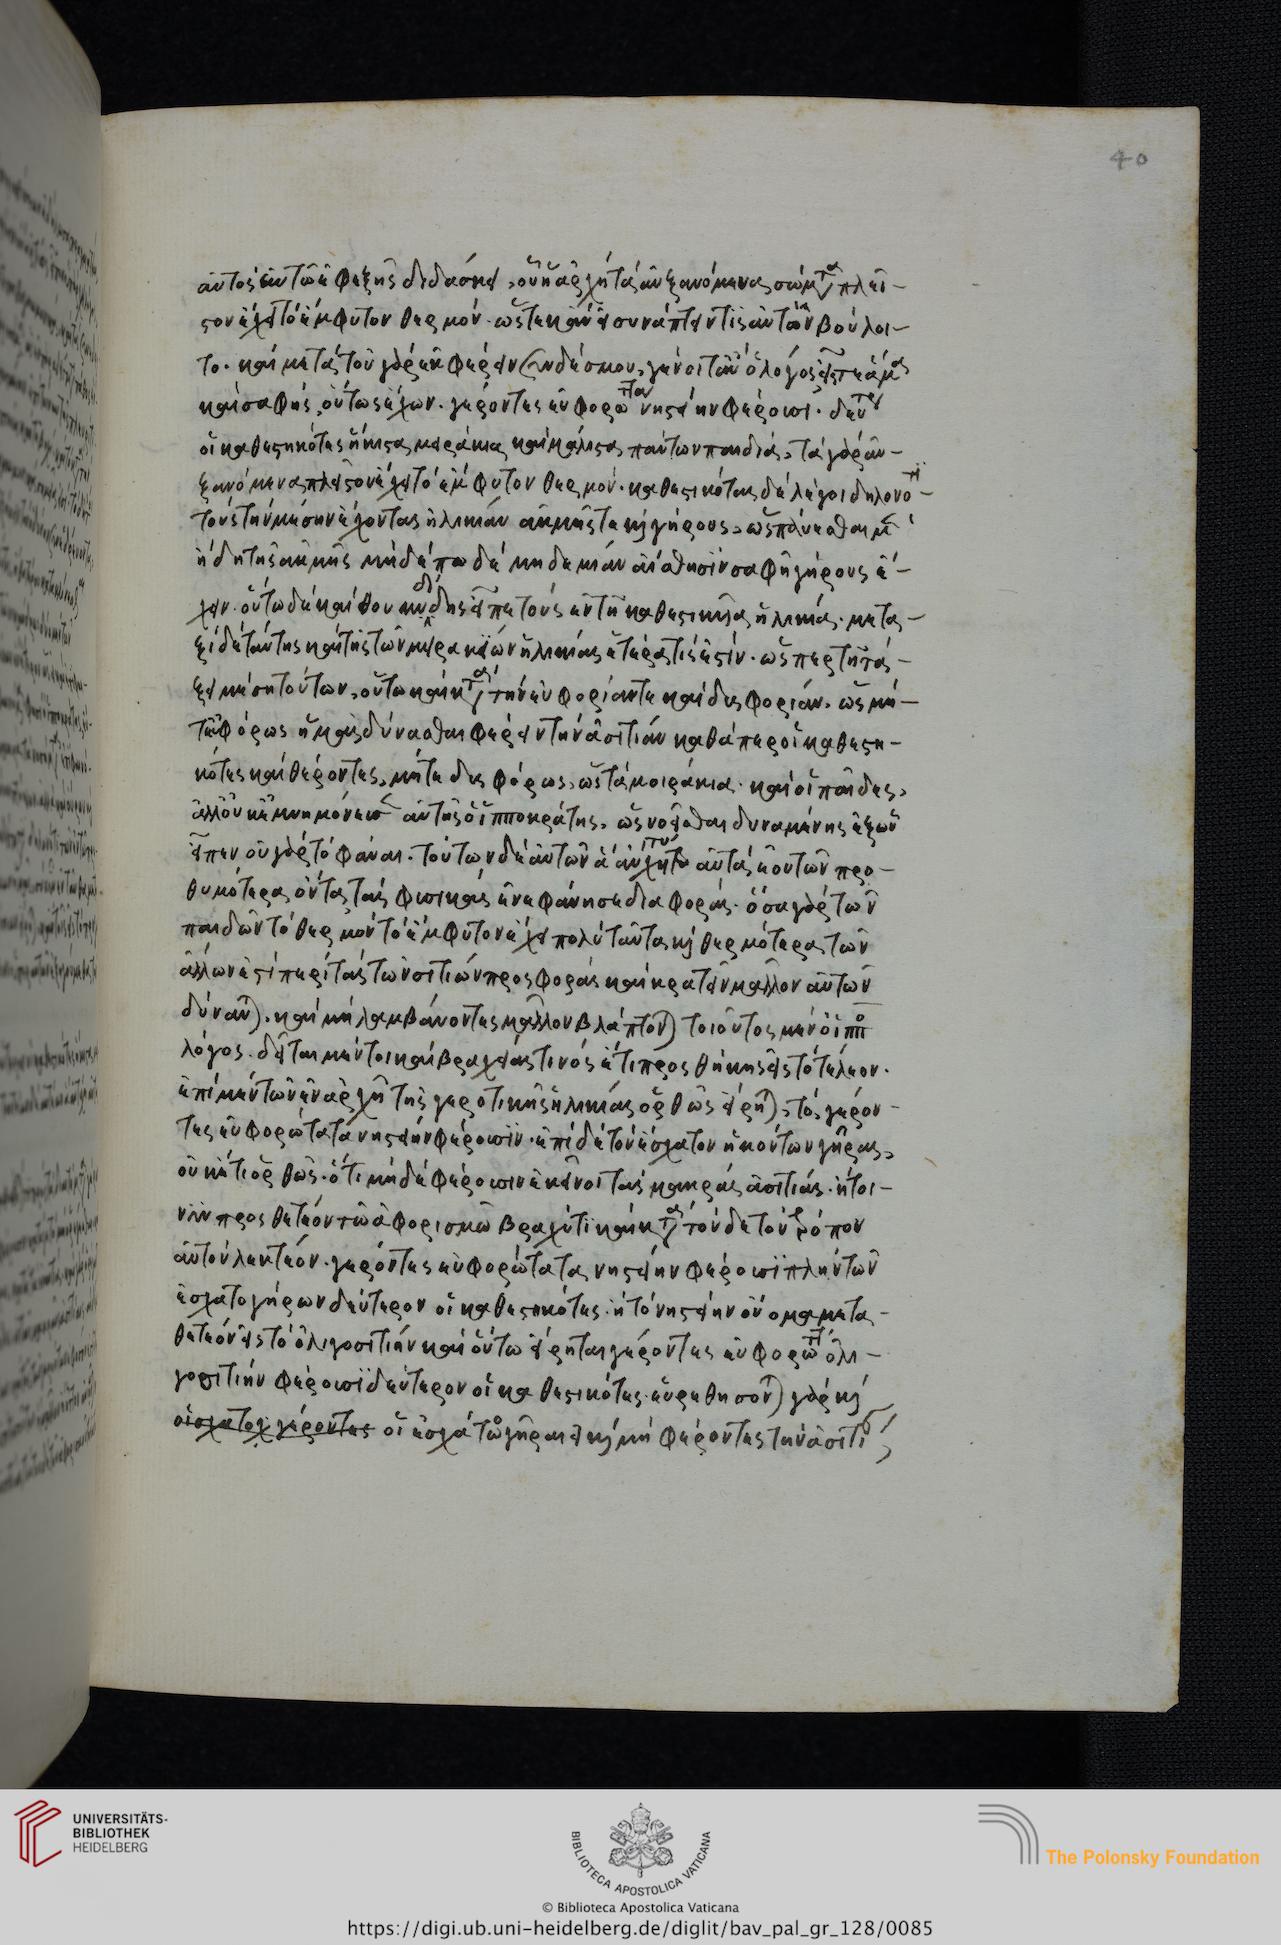 40
αὐτὸς ἐν τῶ ἐφεξῆς διδάσκει, οὗ ἡ ἀρχὴ τὰ αὐξανόμενα σώματα πλεῖ-
στον ἔχει τὸ ἔμφυτον θερμόν. ὥστε κἂν εἰ συνάπτειν τίς αὐτὰ βούλοι-
το. καὶ μετὰ τοῦ γὰρ ἐκφέρειν συνδέσμου, γένοιτ' ἂν ὁ λόγος
καὶ σαφὴς οὕτως ἔχων. γέροντες εὐφορώτατα νηστείην φέρουσι. δεύτερ
οἱ καθεστηκότες ἥκιστα μειράκια καὶ μάλιστα πάντων παιδία, τὰ γὰρ αὐ-
ξανόμενα πλεῖστον ἔχει τὸ ἔμφυτον θερμόν. καθεστικότας δὲ λέγει δηλονότι
τοὺς τὴν μέσην ἔχοντας ἡλικίαν ἀκμῆς τε καὶ γήρους, ὡς πεπαῦσθαι μὲν
ἤδη τῆς ἀκμῆς μηδέπω δὲ μηδεμίαν αἴσθησιν σαφῆ γήρους ἔ-
χειν. οὕτω δὲ καὶ θουκυδίδης εἶπε τοὺς ἐν τῇ καθεστικυῖα ἡλικία. μετα-
ξὺ δὲ ταύτης καὶ τῆς τῶν μειρακίων ἡλικίας ἑτέρα τίς ἐστίν. ὥσπερ τῇ τά-
ξει μέση τούτων, οὕτω καὶ κατὰ τὴν εὐφορίαν τε καὶ δυσφορίαν, ὡς μή-
τε εὐφόρως ἡμᾶς δύνασθαι φέρειν τὴν ἀσιτίαν καθάπερ οἱ καθεστη-
κότες καὶ θέροντες, μήτε δυσφόρως, ὡς τὰ μοιράκια. καὶ οἱ παῖδες,
ἀλλ' οὐκ ἐμνημόνευσεν αὐτῆς ὁ ἱπποκράτης, ὡς νοεῖσθαι δυναμένης ἐξ ὧν
εἶπεν οὐ γὰρ τὸ φάναι. τούτων δὲ αὐτῶν ἃ ἂν τύχη αὐτὰ ἑωυτῶν προ-
θυμότερα ὄντα τὰς φυσικὰς ἐνεφάνησε διαφοράς. ὅσα γὰρ τῶν
παιδῶν τὸ θερμὸν τὸ ἔμφυτον ἔχει πολὺ ταῦτα καὶ θερμότερα τῶν
ἄλλων ἐστὶ περὶ τὰς τῶν σιτιῶν προσφορὰς καὶ κρατεῖν μᾶλλον αὐτῶν
δύναται. καὶ μὴ λαμβάνοντες μᾶλλον βλάπτονται τοιοῦτος μὲν ὁ ἱππο
λόγος. δεῖται μέντοι καὶ βραχείας τινὸς ἔτι προσθήκης εἰς τὸ τέλεον.
ἐπὶ μὲν τῶν ἐν ἀρχῇ τῆς γεροντικῆς ἡλικίας ὀρθῶς εἴρηται, τὸ, γέρον-
τες εὐφορώτατα νηστείην φέρουσιν. ἐπὶ δὲ τὸν ἔσχατον ἡκόντων γῆρας,
οὐκέτι ὀρθῶς. ὅτι μηδὲ φέρουσιν ἐκεῖνοι τὰς μακρὰς ἀσιτίας. ἤτοι-
νυν προσθετέον τῶ ἀφορισμῶ βραχύ τι καὶ κατὰ τόνδε τὸν τρόπον
αὐτὸν λεκτέον. γέροντες εὐφορώτατα νηστείην φέρουσι πλὴν τῶν
ἐσχατογήρων δεύτερον οἱ καθεστικότες. ἢ τὸ νηστείην ὄνομα μετα-
θετέον εἰς τὸ ὀλιγοσιτίην καὶ οὕτω εἰρῆται γέροντες εὐφορώτ ὀλι-
γοσιτίην φέρουσι δεύτερον οἱ καθεστικότες. εὑρεθήσονται γὰρ καὶ
οἱ ἐσχατοχ γέροντες οἱ ἐσχάτῳ γήραι εἰ καὶ μὴ φέροντες τὴν ἀσιτί
UNIVERSITÄTS-
BIBLIOTHEK
HEIDELBERG
BIBLIOTECA APOSTOLICA VATICANA
The Polonsky Foundation
© Biblioteca Apostolica Vaticana
https://digi.ub.uni-heidelberg.de/diglit/bav_pal_gr_128/0085